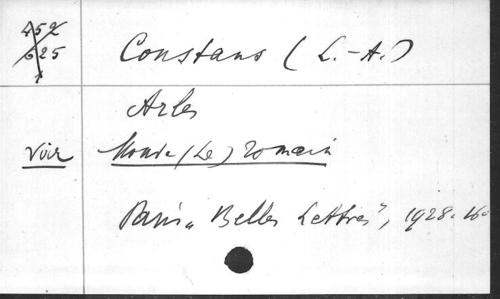 452
625
1
Constans (L.-A.)
Arles
Voir Monde (Le) romain
Paris „Belles Lettres", 1928. 16o